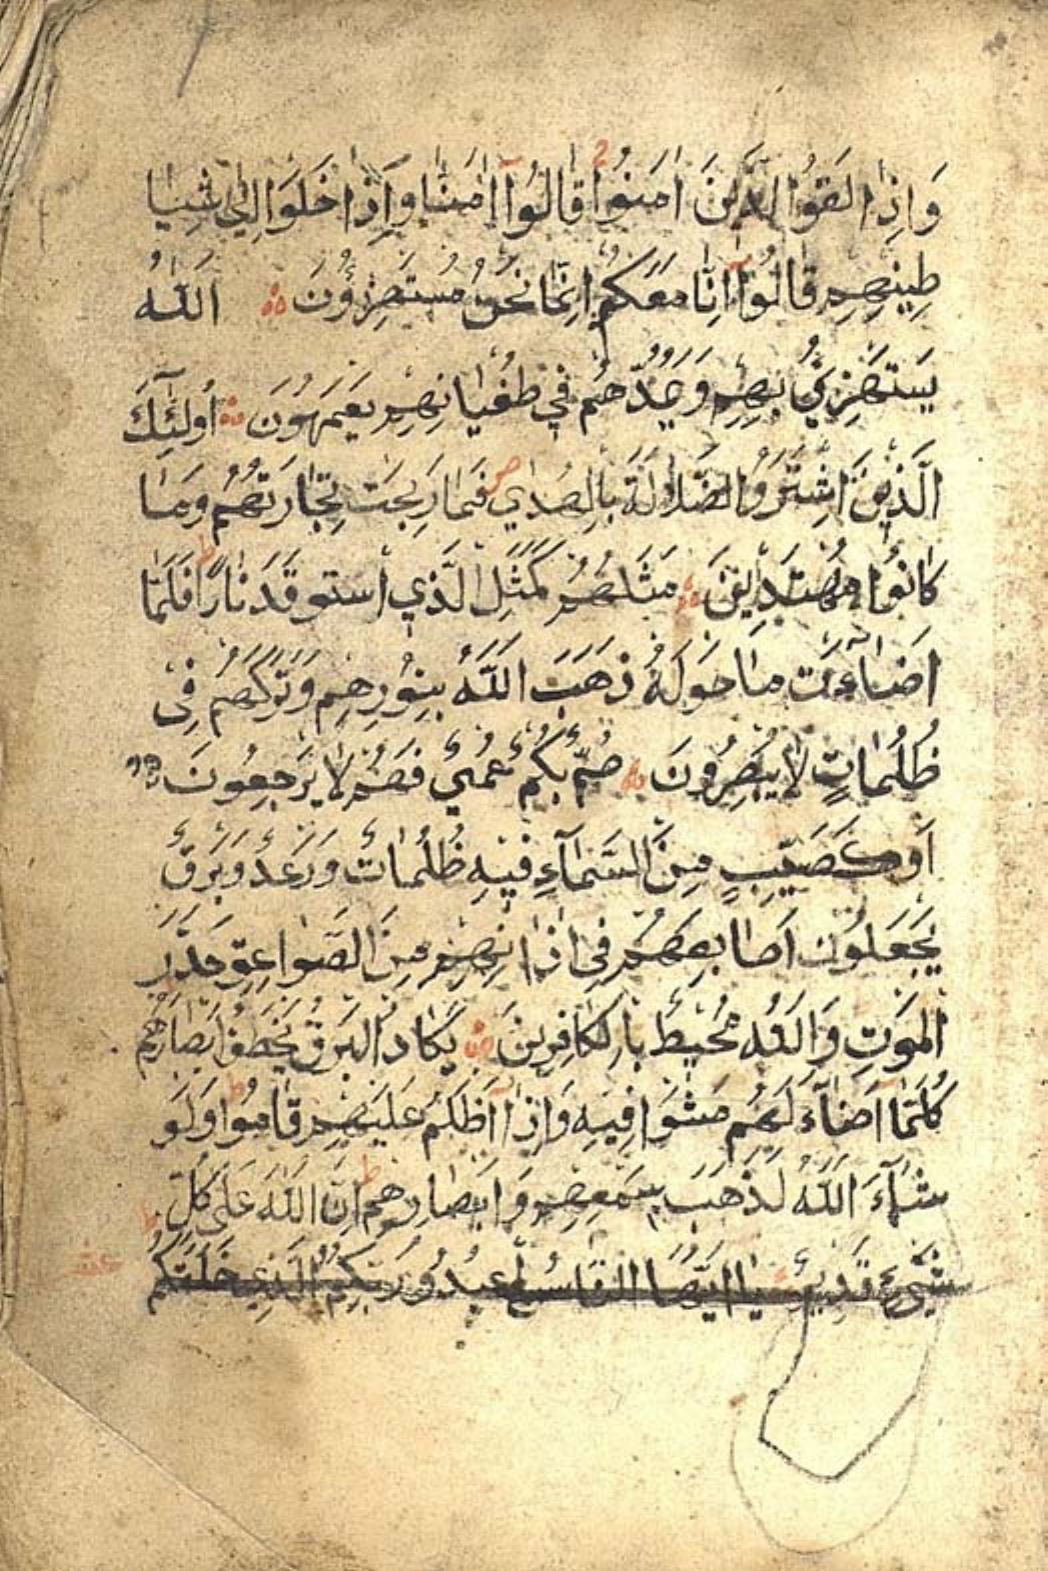 وَاِذَا لَقُوا الَّذٖينَ اٰمَنُوا قَالُوٓا اٰمَنَّا وَاِذَا خَلَوْا اِلٰى شَيَا
طٖينِهِمْ قَالُوٓا اِنَّا مَعَكُمْ اِنَّمَا نَحْنُ مُسْتَهْزِؤُنَ اَللّٰهُ
يَسْتَهْزِئُ بِهِمْ وَيَمُدُّهُمْ فٖي طُغْيَانِهِمْ يَعْمَهُونَ اُولٰٓئِكَ
الَّذٖينَ اشْتَرَوُا الضَّلَالَةَ بِالْهُدٰي فَمَا رَبِحَتْ تِجَارَتُهُمْ وَمَا
كَانُوا مُهْتَدٖينَ مَثَلُهُمْ كَمَثَلِ الَّذٖي اسْتَوْقَدَ نَارًا فَلَمَّا
اَضَٓاءَتْ مَا حَوْلَهُ ذَهَبَ اللّٰهُ بِنُورِهِمْ وَتَرَكَهُمْ فٖى
ظُلُمَاتٍ لَا يُبْصِرُونَ صُمٌّ بُكْمٌ عُمْيٌ فَهُمْ لَا يَرْجِعُونَ
اَوْ كَصَيِّبٍ مِنَ السَّمَٓاءِ فٖيهِ ظُلُمَاتٌ وَرَعْدٌ وَبَرْقٌ
يَجْعَلُونَ اَصَابِعَهُمْ فٖى اٰذَانِهِمْ مِنَ الصَّوَاعِقِ حَذَرَ
الْمَوْتِ وَاللّٰهُ مُحٖيطٌ بِالْكَافِرٖينَ يَكَادُ الْبَرْقُ يَخْطَفُ اَبْصَارَهُمْ
كُلَّمَٓا اَضَٓاءَ لَهُمْ مَشَوْا فٖيهِ وَاِذَٓا اَظْلَمَ عَلَيْهِمْ قَامُوا وَلَوْ
شَٓاءَ اللّٰهُ لَذَهَبَ بِسَمْعِهِمْ وَاَبْصَارِهِمْ اِنَّ اللّٰهَ عَلٰى كُلِّ
شَيْءٍ قَدٖيرٌ يَٓا اَيُّهَا النَّاسُ اعْبُدُوا رَبَّكُمُ الَّذٖي خَلَقَكُمْ